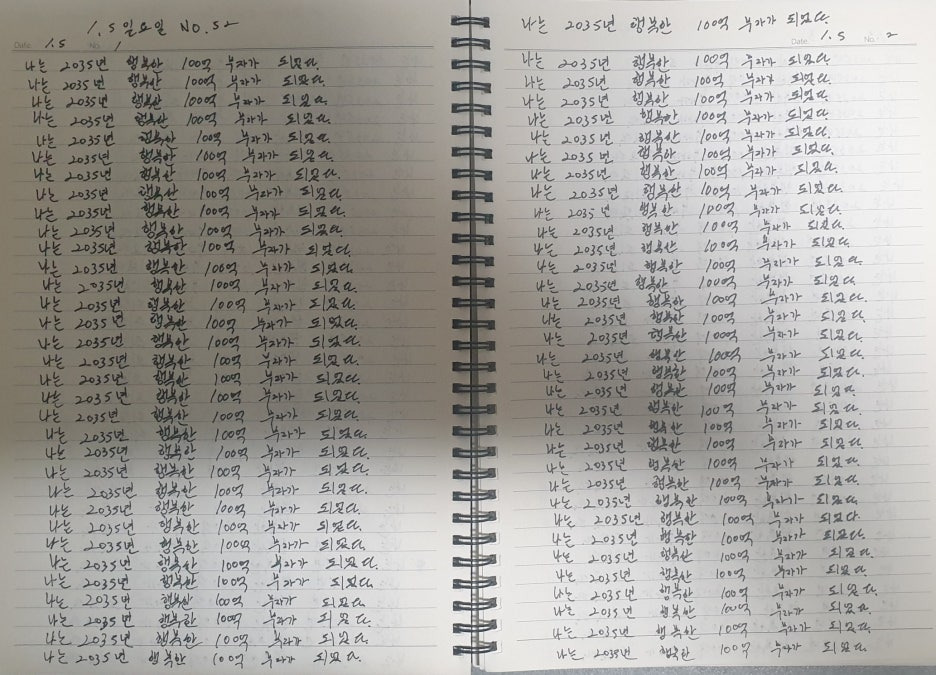 1.5 일요일 NO.52
Date. 1.5 No. 1
나는 2035년 행복한 100억 부자가 되었다.
나는 2035년 행복한 100억 부자가 되었다.
나는 2035년 행복한 100억 부자가 되었다.
나는 2035년 행복한 100억 부자가 되었다.
나는 2035년 행복한 100억 부자가 되었다.
나는 2035년 행복한 100억 부자가 되었다.
나는 2035년 행복한 100억 부자가 되었다.
나는 2035년 행복한 100억 부자가 되었다.
나는 2035년 행복한 100억 부자가 되었다.
나는 2035년 행복한 100억 부자가 되었다.
나는 2035년 행복한 100억 부자가 되었다.
나는 2035년 행복한 100억 부자가 되었다.
나는 2035년 행복한 100억 부자가 되었다.
나는 2035년 행복한 100억 부자가 되었다.
나는 2035년 행복한 100억 부자가 되었다.
나는 2035년 행복한 100억 부자가 되었다.
나는 2035년 행복한 100억 부자가 되었다.
나는 2035년 행복한 100억 부자가 되었다.
나는 2035년 행복한 100억 부자가 되었다.
나는 2035년 행복한 100억 부자가 되었다.
나는 2035년 행복한 100억 부자가 되었다.
나는 2035년 행복한 100억 부자가 되었다.
나는 2035년 행복한 100억 부자가 되었다.
나는 2035년 행복한 100억 부자가 되었다.
나는 2035년 행복한 100억 부자가 되었다.
나는 2035년 행복한 100억 부자가 되었다.
나는 2035년 행복한 100억 부자가 되었다.
나는 2035년 행복한 100억 부자가 되었다.
나는 2035년 행복한 100억 부자가 되었다.
나는 2035년 행복한 100억 부자가 되었다.
나는 2035년 행복한 100억 부자가 되었다.
나는 2035년 행복한 100억 부자가 되었다.
나는 2035년 행복한 100억 부자가 되었다.
나는 2035년 행복한 100억 부자가 되었다.
Date. 1.5 No. 2
나는 2035년 행복한 100억 부자가 되었다.
나는 2035년 행복한 100억 부자가 되었다.
나는 2035년 행복한 100억 부자가 되었다.
나는 2035년 행복한 100억 부자가 되었다.
나는 2035년 행복한 100억 부자가 되었다.
나는 2035년 행복한 100억 부자가 되었다.
나는 2035년 행복한 100억 부자가 되었다.
나는 2035년 행복한 100억 부자가 되었다.
나는 2035년 행복한 100억 부자가 되었다.
나는 2035년 행복한 100억 부자가 되었다.
나는 2035년 행복한 100억 부자가 되었다.
나는 2035년 행복한 100억 부자가 되었다.
나는 2035년 행복한 100억 부자가 되었다.
나는 2035년 행복한 100억 부자가 되었다.
나는 2035년 행복한 100억 부자가 되었다.
나는 2035년 행복한 100억 부자가 되었다.
나는 2035년 행복한 100억 부자가 되었다.
나는 2035년 행복한 100억 부자가 되었다.
나는 2035년 행복한 100억 부자가 되었다.
나는 2035년 행복한 100억 부자가 되었다.
나는 2035년 행복한 100억 부자가 되었다.
나는 2035년 행복한 100억 부자가 되었다.
나는 2035년 행복한 100억 부자가 되었다.
나는 2035년 행복한 100억 부자가 되었다.
나는 2035년 행복한 100억 부자가 되었다.
나는 2035년 행복한 100억 부자가 되었다.
나는 2035년 행복한 100억 부자가 되었다.
나는 2035년 행복한 100억 부자가 되었다.
나는 2035년 행복한 100억 부자가 되었다.
나는 2035년 행복한 100억 부자가 되었다.
나는 2035년 행복한 100억 부자가 되었다.
나는 2035년 행복한 100억 부자가 되었다.
나는 2035년 행복한 100억 부자가 되었다.